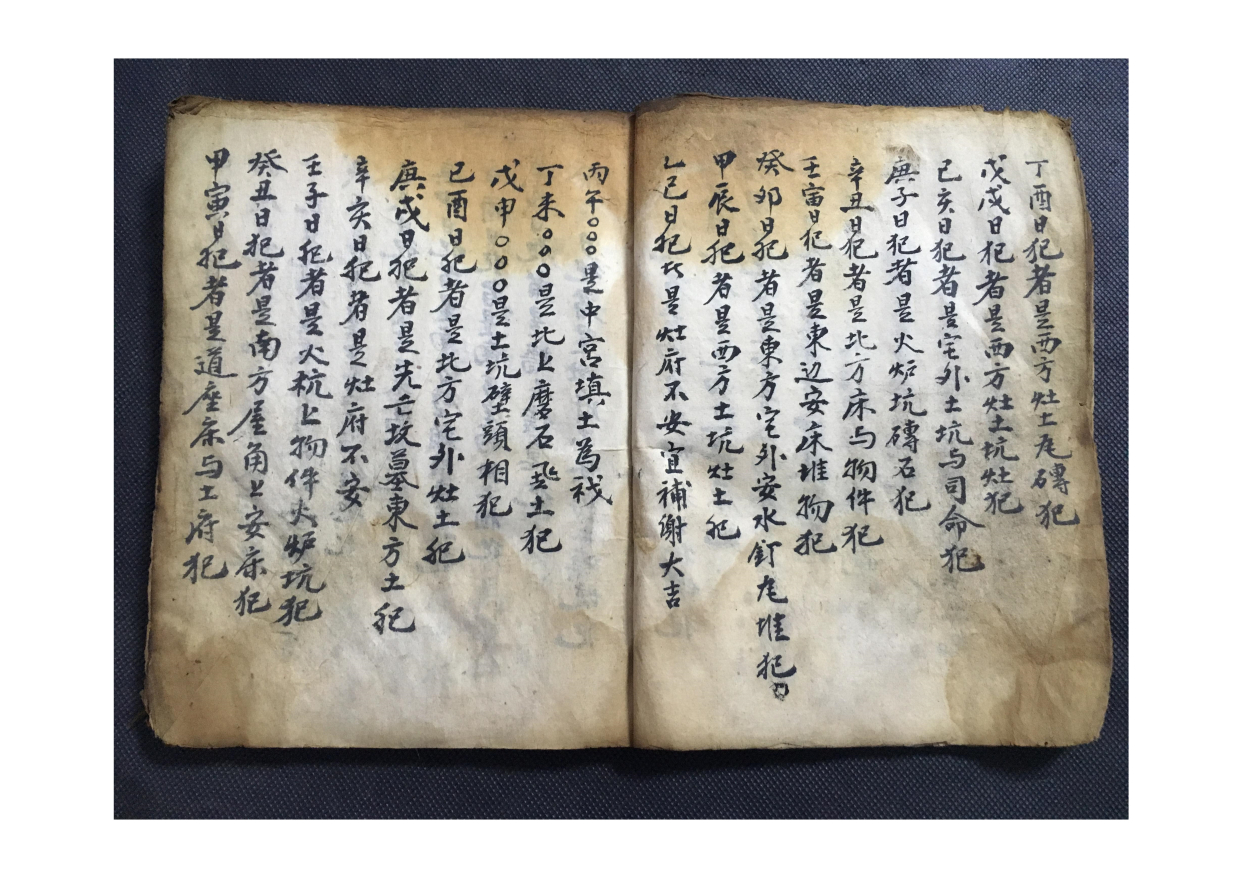 丁酉日犯者是西方灶土瓦磚犯
戊戌日犯者是西方灶土坑灶犯
己亥日犯者是宅外土坑与司命犯
庚子日犯者是火炉坑磚石犯
辛丑日犯者是北方床与物件犯
壬寅日犯者是東边安床堆物犯
癸卯日犯者是東方宅外安水釘瓦堆犯
甲辰日犯者是西方土坑灶土犯
乙巳日犯者是灶府不安宜補谢大吉
丙午○○○是中宮填土為
丁未○○○是北上磨石飛土犯
戊申○○○是土坑壁頭相犯
己酉日犯者是北方宅外灶土犯
庚戌日犯者是先亡坟墓東方土犯
辛亥日犯者是灶府不安
壬子日犯者是火杭上物件火炉坑犯
癸丑日犯者是南方屋角上安床犯
甲寅日犯者是道座床与土府犯